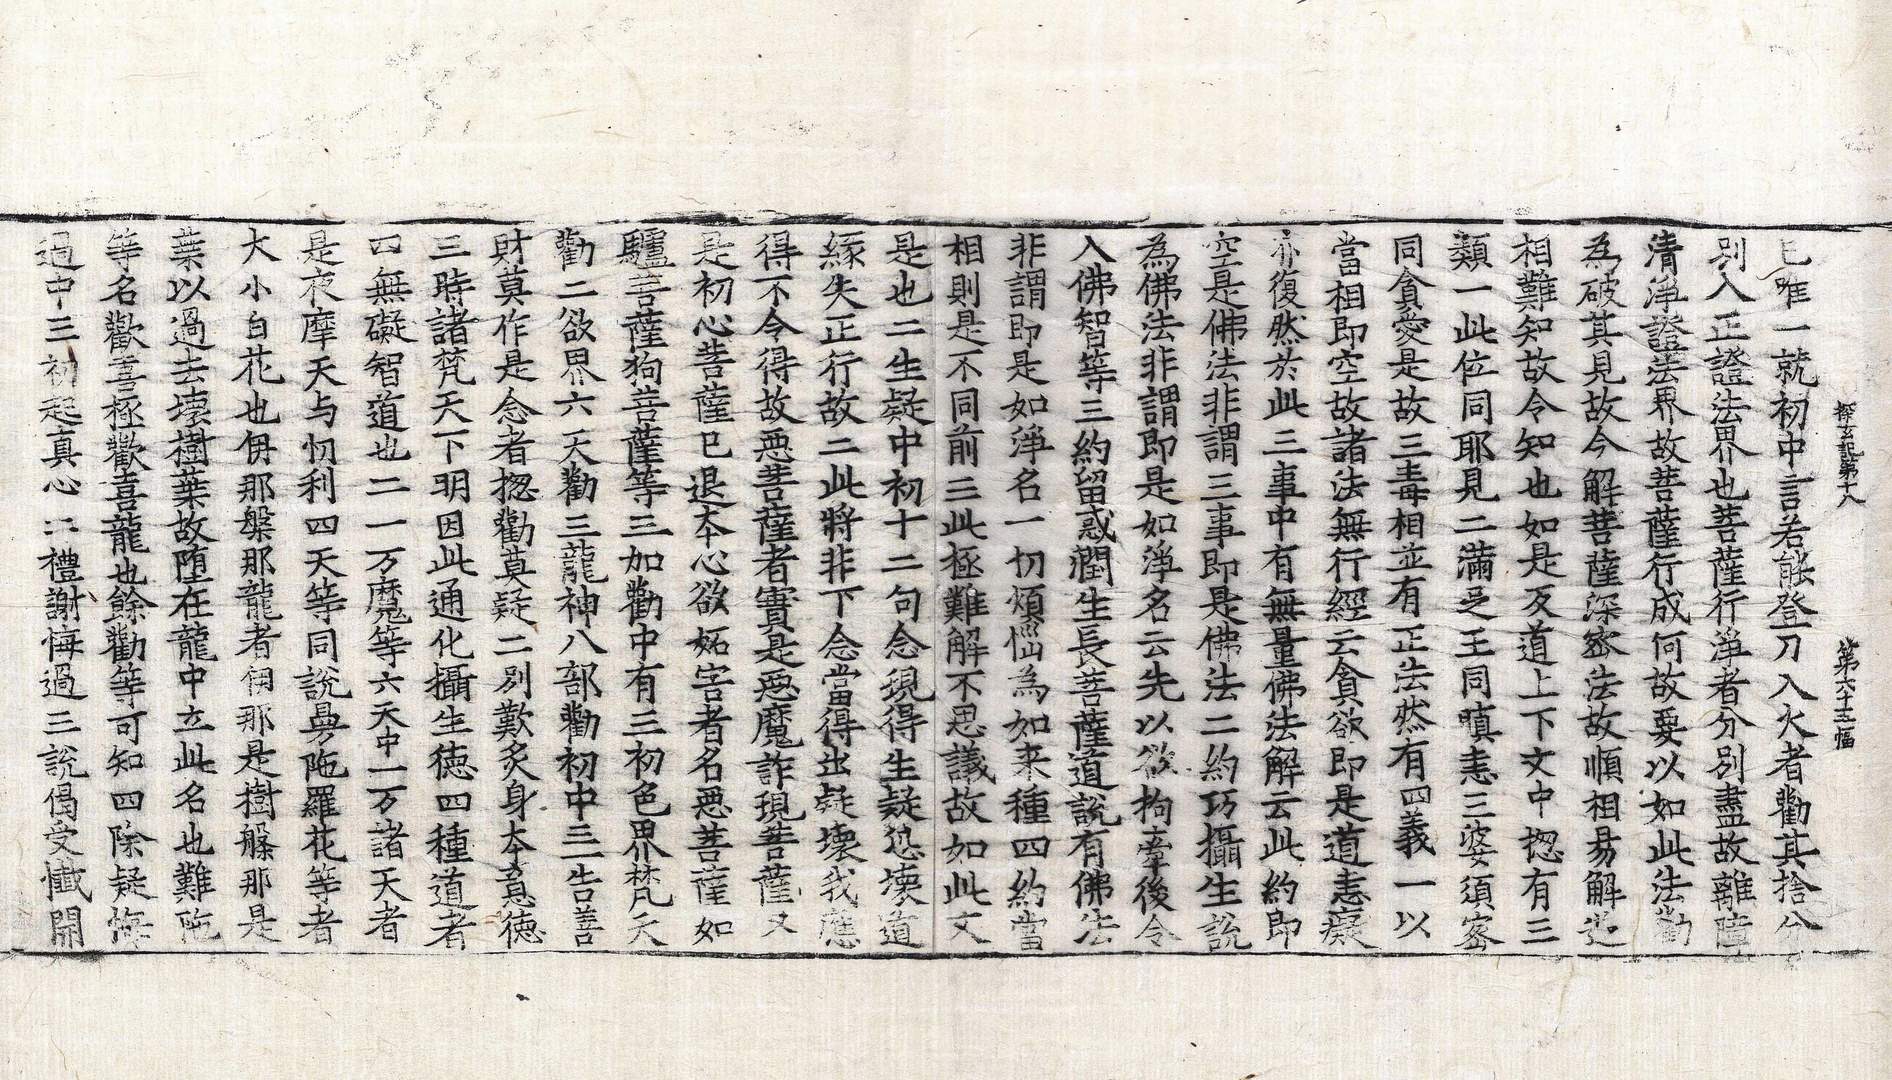 探玄記第十八　第六十五幅
已唯一就初中言若能登刀入火者勸其捨分
別入正證法界也菩薩行淨者分別盡故離障
清淨證法界故菩薩行成何故要以如此法勸
為破其見故今解菩薩深密法故順相易解逆
相難知故令知也如是反道上下文中揔有三
類一此位同耶見二滿足王同瞋恚三婆須密
同貪愛是故三毒相並有正法然有四義一以
當相即空故諸法無行經云貪欲即是道恚癡
亦復然於此三事中有無量佛法解云此約即
空是佛法非謂三事即是佛法二約巧攝生說
為佛法非謂即是如淨名云先以欲拘牽後令
入佛智等三約留惑潤生長菩薩道說有佛法
非謂即是如淨名一切煩惱為如来種四約當
相則是不同前三此極難解不思議故如此文
是也二生疑中初十二句念現得生疑恐壞道
緣失正行故二此將非下念當得出疑壞我應
得不令得故惡菩薩者實是惡魔詐現菩薩又
是初心菩薩已退本心欲妬害者名惡菩薩如
驢菩薩狗菩薩等三加勸中有三初色界梵天
勸二欲界六天勸三龍神八部勸初中三一告善
財莫作是念者揔勸莫疑二別歎炙身本意德
三時諸梵天下明因此通化攝生德四種道者
四無礙智道也二一万魔等六天中一一万諸天者
是夜摩天与忉利四天等同說曼陁羅花等者
大小白花也伊那槃那龍者伊那是樹槃那是
葉以過去壞樹葉故墮在龍中立此名也難陁
等名歡喜極歡喜龍也餘勸等可知四除疑悔
過中三初起真心二禮謝悔過三說偈受懺開